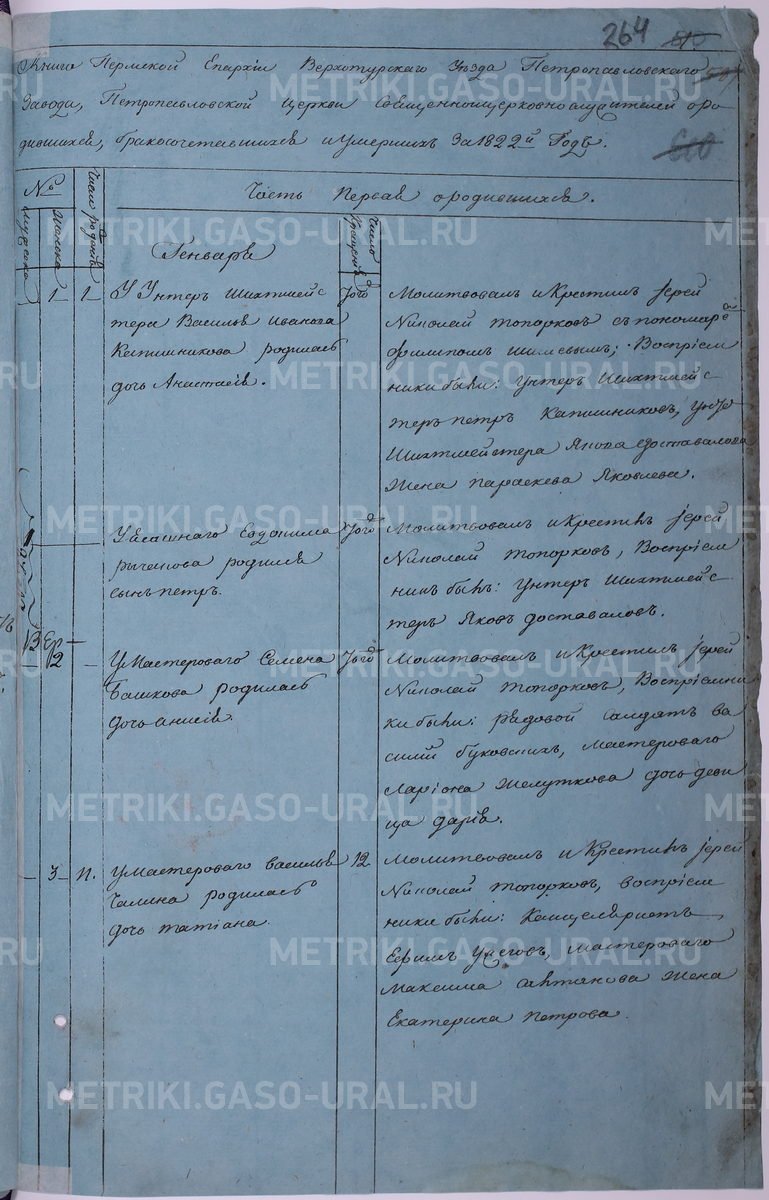 264
Книга Пермской Епархіи Верхотурскаго Уезда Петропавловскаго
Завода, Петропавловской церкви Священноцерковнослужителей оро
дившихся, бракосочетавшихся иумершихъ За 1822й Годъ.
№
Число рожденія
Часть Первая ородившихся.
мужеска
женска
Число крещенія
Генваря
1 1 У Унтеръ Шихтмейс 3го
тера Василья Иванова
Капишникова родилась
дочь Анастасія.
Молитвовалъ иКрестилъ Іерей
Николай Топорковъ съпономаре
Филипомъ Шишевымъ; Воспріем
ники были: Унтеръ Шихтмейс
теръ петръ Капишниковъ, унте
Шихтмейстера Якова Доставалова
Жена параскева Яковлева.
родился
сынъ петръ.
Молитвовалъ иКрестилъ Іерей
Николай Топорковъ, Воспріем
никъ былъ: Унтеръ Шихтмейс
теръ Яковъ доставаловъ.
2 уМастероваго Семена
Башкова родилась
дочь анисія.
Молитвовалъ иКрестилъ Іерей
Николай Топорковъ, Воспріемни
ки были: рядовой Солдатъ ва
силій буковскихъ, мастероваго
Ларіона Желуткова дочь деви
ца дарія.
3 11. уМастероваго василья 12
Чалина родилась
дочь татіана.
Молитвовалъ и Крестилъ Іерей
Николай Топорковъ, воспріем
ники были: Канцеляристъ
Ефимъ мастероваго
Максима Жена
Екатерина Петрова.
METRIKI.GASO-URAL.RU